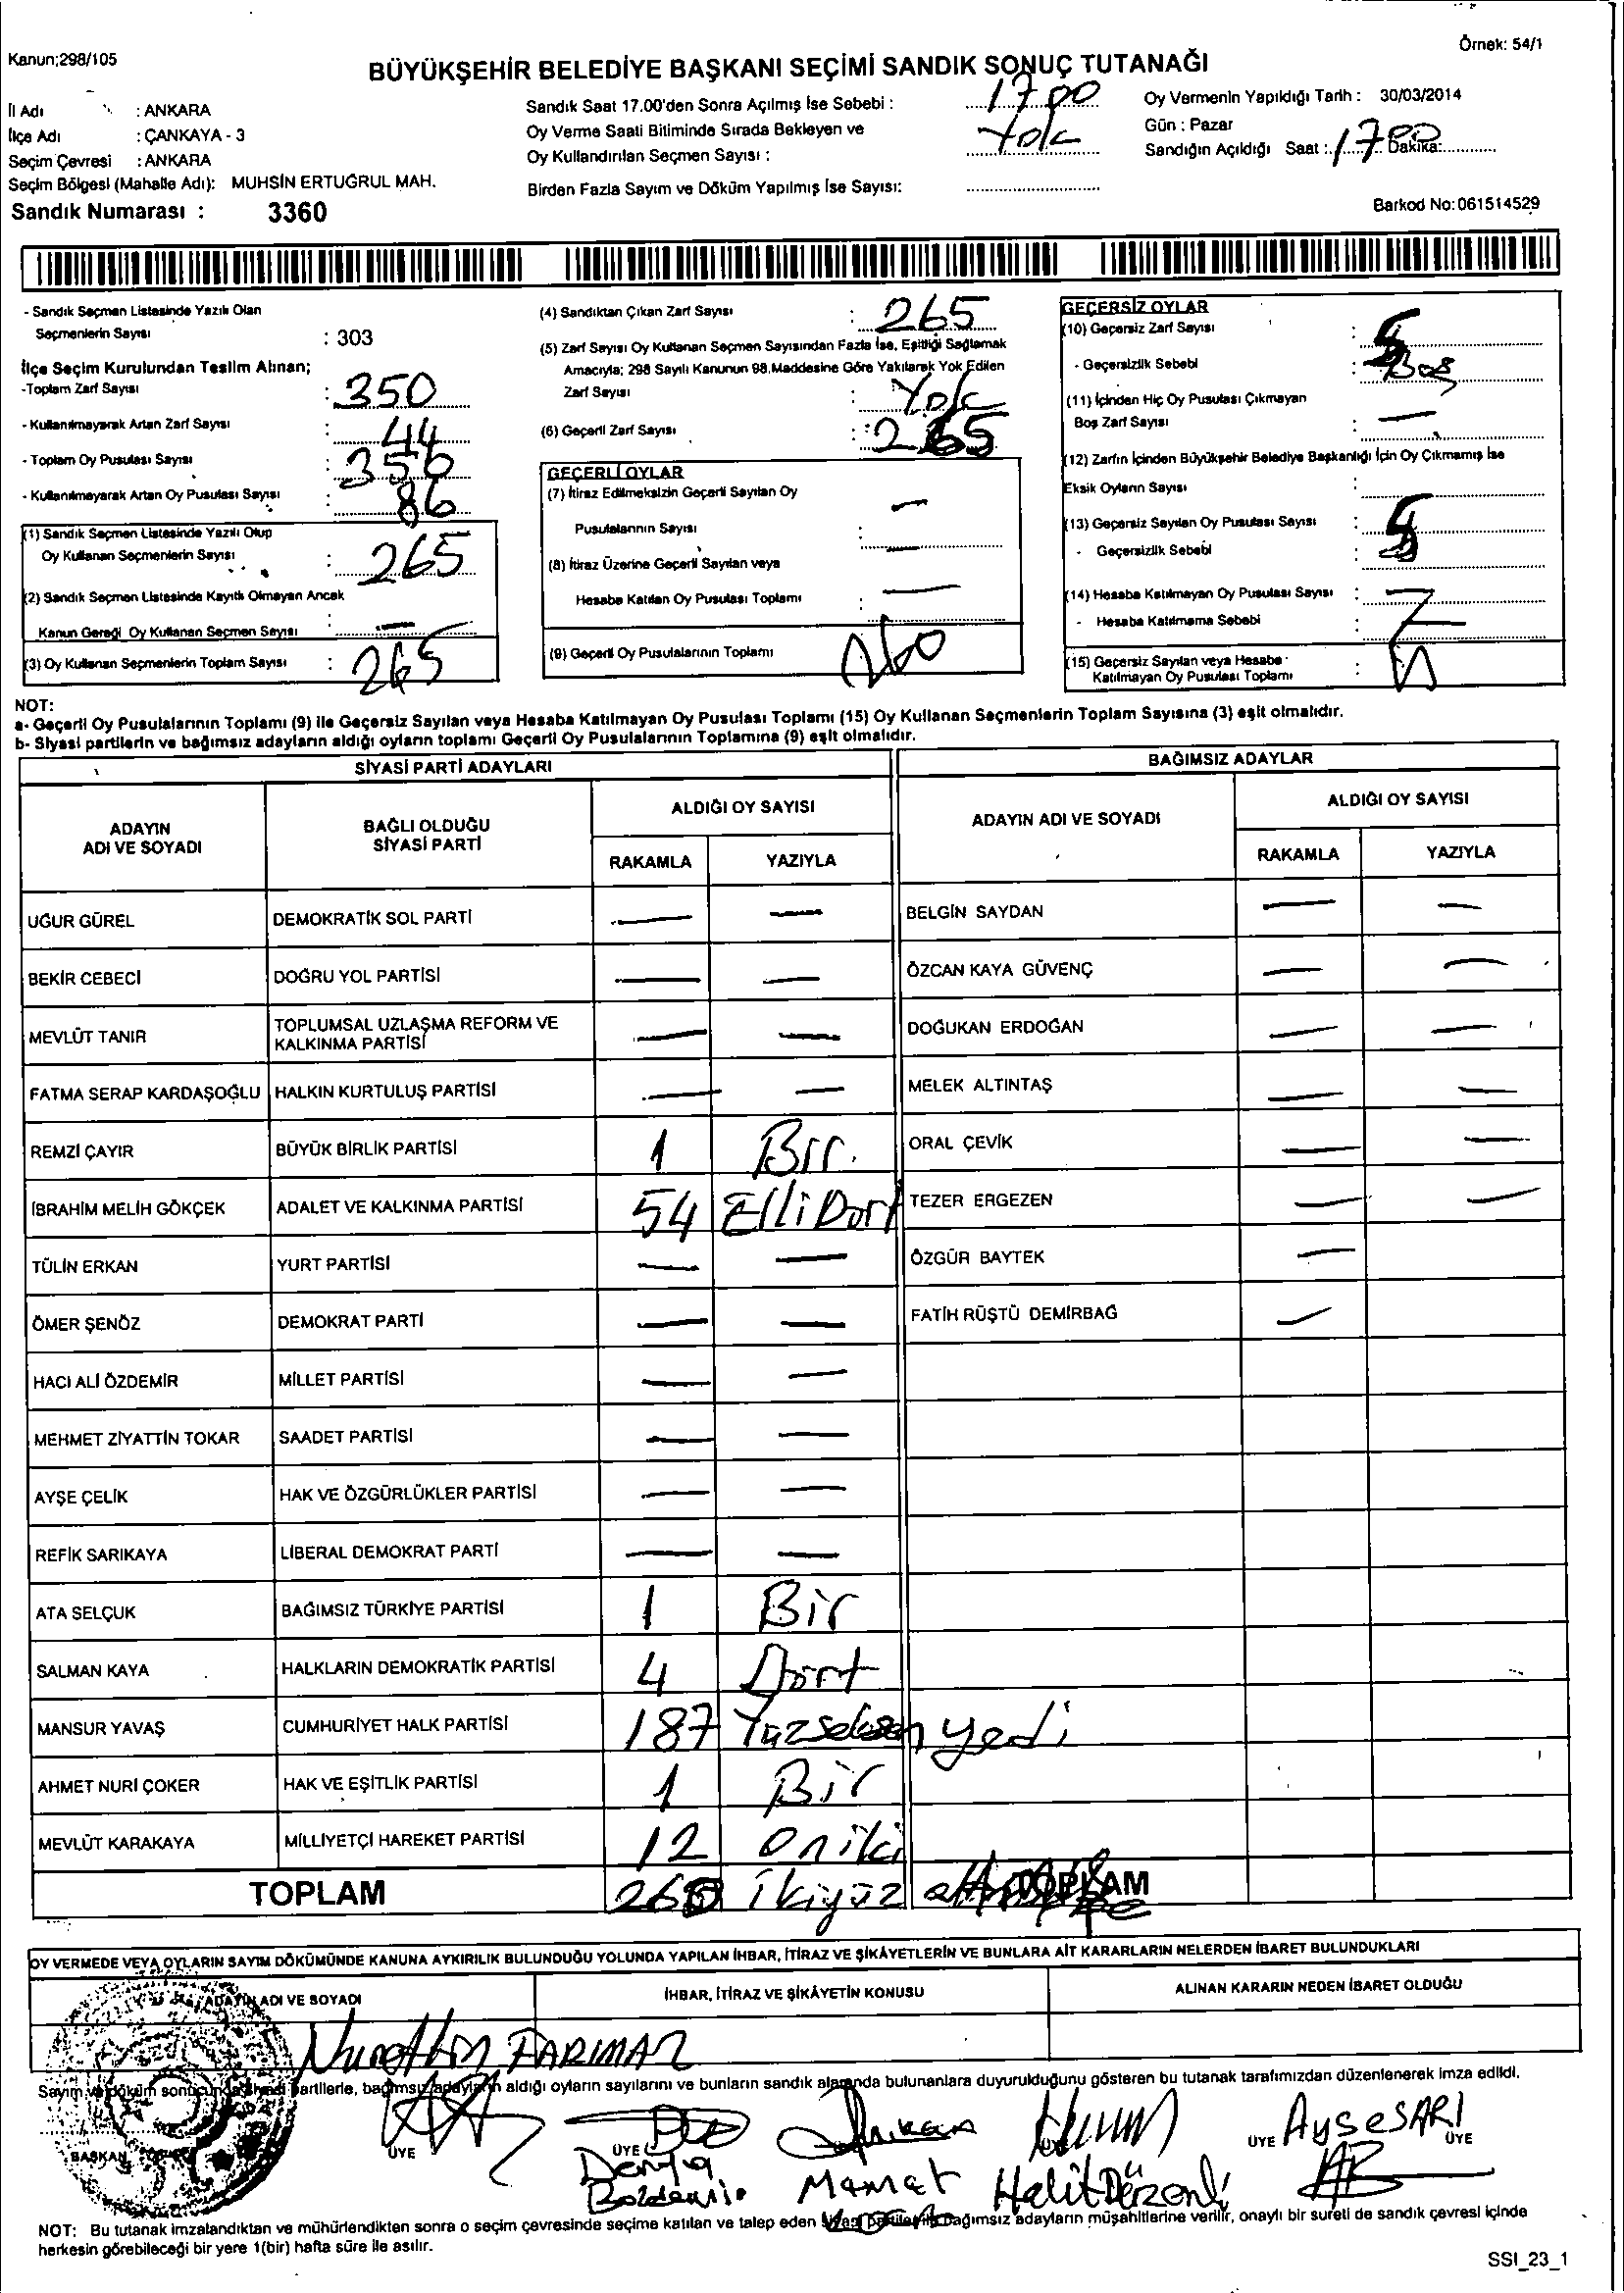 Örnek: 54/1
Kanun;298/105
BÜYÜKŞEHİR BELEDİYE BAŞKANI SEÇİMİ SANDIK SONUÇ TUTANAĞI
İl Adı : ANKARA
İlçe Adı : ÇANKAYA - 3
Seçim Çevresi : ANKARA
Seçim Bölgesi (Mahalle Adı): MUHSİN ERTUĞRUL MAH.
Sandık Numarası : 3360
Sandık Saat 17.00'den Sonra Açılmış İse Sebebi : 1700
Oy Verme Saati Bitiminde Sırada Bekleyen ve
Oy Kullandırılan Seçmen Sayısı : Yok
Birden Fazla Sayım ve Döküm Yapılmış İse Sayısı:
Oy Vermenin Yapıldığı Tarih : 30/03/2014
Gün : Pazar
Sandığın Açıldığı Saat : 17 00 Dakika:
Barkod No:061514529
- Sandık Seçmen Listesinde Yazılı Olan
Seçmenlerin Sayısı : 303
İlçe Seçim Kurulundan Teslim Alınan;
-Toplam Zarf Sayısı : 350
- Kullanılmayarak Artan Zarf Sayısı : 44
- Toplam Oy Pusulası Sayısı : 356
- Kullanılmayarak Artan Oy Pusulası Sayısı : 86
(1) Sandık Seçmen Listesinde Yazılı Olup
Oy Kullanan Seçmenlerin Sayısı : 265
(2) Sandık Seçmen Listesinde Kayıtlı Olmayan Ancak
Kanun Gereği Oy Kullanan Seçmen Sayısı : —
(3) Oy Kullanan Seçmenlerin Toplam Sayısı : 265
(4) Sandıktan Çıkan Zarf Sayısı : 265
(5) Zarf Sayısı Oy Kullanan Seçmen Sayısından Fazla İse, Eşitliği Sağlamak
Amacıyla; 298 Sayılı Kanunun 98.Maddesine Göre Yakılarak Yok Edilen
Zarf Sayısı : Yok
(6) Geçerli Zarf Sayısı : 265
GEÇERLİ OYLAR
(7) İtiraz Edilmeksizin Geçerli Sayılan Oy
Pusulalarının Sayısı : —
(8) İtiraz Üzerine Geçerli Sayılan veya
Hesaba Katılan Oy Pusulası Toplamı : —
(9) Geçerli Oy Pusulalarının Toplamı
GEÇERSİZ OYLAR
(10) Geçersiz Zarf Sayısı : 5
- Geçersizlik Sebebi : Boş
(11) İçinden Hiç Oy Pusulası Çıkmayan
Boş Zarf Sayısı : —
(12) Zarfın İçinden Büyükşehir Belediye Başkanlığı İçin Oy Çıkmamış İse
Eksik Oyların Sayısı :
(13) Geçersiz Sayılan Oy Pusulası Sayısı : 5
- Geçersizlik Sebebi :
(14) Hesaba Katılmayan Oy Pusulası Sayısı :
- Hesaba Katılmama Sebebi :
(15) Geçersiz Sayılan veya Hesaba
Katılmayan Oy Pusulası Toplamı :
NOT:
a- Geçerli Oy Pusulalarının Toplamı (9) ile Geçersiz Sayılan veya Hesaba Katılmayan Oy Pusulası Toplamı (15) Oy Kullanan Seçmenlerin Toplam Sayısına (3) eşit olmalıdır.
b- Siyasi partilerin ve bağımsız adayların aldığı oyların toplamı Geçerli Oy Pusulalarının Toplamına (9) eşit olmalıdır.
SİYASİ PARTİ ADAYLARI
ADAYIN ADI VE SOYADI BAĞLI OLDUĞU SİYASİ PARTİ ALDIĞI OY SAYISI
RAKAMLA YAZIYLA
UĞUR GÜREL DEMOKRATİK SOL PARTİ — —
BEKİR CEBECİ DOĞRU YOL PARTİSİ — —
MEVLÜT TANIR TOPLUMSAL UZLAŞMA REFORM VE KALKINMA PARTİSİ — —
FATMA SERAP KARDAŞOĞLU HALKIN KURTULUŞ PARTİSİ — —
REMZİ ÇAYIR BÜYÜK BİRLİK PARTİSİ 1 Bir.
İBRAHİM MELİH GÖKÇEK ADALET VE KALKINMA PARTİSİ 54 Elli Dört
TÜLİN ERKAN YURT PARTİSİ — —
ÖMER ŞENÖZ DEMOKRAT PARTİ — —
HACI ALİ ÖZDEMİR MİLLET PARTİSİ — —
MEHMET ZİYATTİN TOKAR SAADET PARTİSİ — —
AYŞE ÇELİK HAK VE ÖZGÜRLÜKLER PARTİSİ — —
REFİK SARIKAYA LİBERAL DEMOKRAT PARTİ — —
ATA SELÇUK BAĞIMSIZ TÜRKİYE PARTİSİ 1 Bir
SALMAN KAYA HALKLARIN DEMOKRATİK PARTİSİ 4 Dört
MANSUR YAVAŞ CUMHURİYET HALK PARTİSİ 187 Yüzseksen yedi
AHMET NURİ ÇOKER HAK VE EŞİTLİK PARTİSİ 1 Bir
MEVLÜT KARAKAYA MİLLİYETÇİ HAREKET PARTİSİ 12 oniki
TOPLAM 260 ikiyüz
BAĞIMSIZ ADAYLAR
ADAYIN ADI VE SOYADI ALDIĞI OY SAYISI
RAKAMLA YAZIYLA
BELGİN SAYDAN — —
ÖZCAN KAYA GÜVENÇ — —
DOĞUKAN ERDOĞAN — —
MELEK ALTINTAŞ — —
ORAL ÇEVİK — —
TEZER ERGEZEN — —
ÖZGÜR BAYTEK —
FATİH RÜŞTÜ DEMİRBAĞ —
TOPLAM
OY VERMEDE VEYA OYLARIN SAYIM DÖKÜMÜNDE KANUNA AYKIRILIK BULUNDUĞU YOLUNDA YAPILAN İHBAR, İTİRAZ VE ŞİKÂYETLERİN VE BUNLARA AİT KARARLARIN NELERDEN İBARET BULUNDUKLARI
ADAYIN ADI VE SOYADI İHBAR, İTİRAZ VE ŞİKÂYETİN KONUSU ALINAN KARARIN NEDEN İBARET OLDUĞU
Nurettin
Sayım ve döküm sonucunda siyasi partilerle, bağımsız adayların aldığı oyların sayılarını ve bunların sandık alanında bulunanlara duyurulduğunu gösteren bu tutanak tarafımızdan düzenlenerek imza edildi.
BAŞKAN ÜYE ÜYE ÜYE ÜYE
Ayşe SARI
Derya
Mamat
Halit Düzenli
NOT: Bu tutanak imzalandıktan ve mühürlendikten sonra o seçim çevresinde seçime katılan ve talep eden siyasi partiler ile bağımsız adayların müşahitlerine verilir, onaylı bir sureti de sandık çevresi içinde
herkesin görebileceği bir yere 1(bir) hafta süre ile asılır.
SSI_23_1